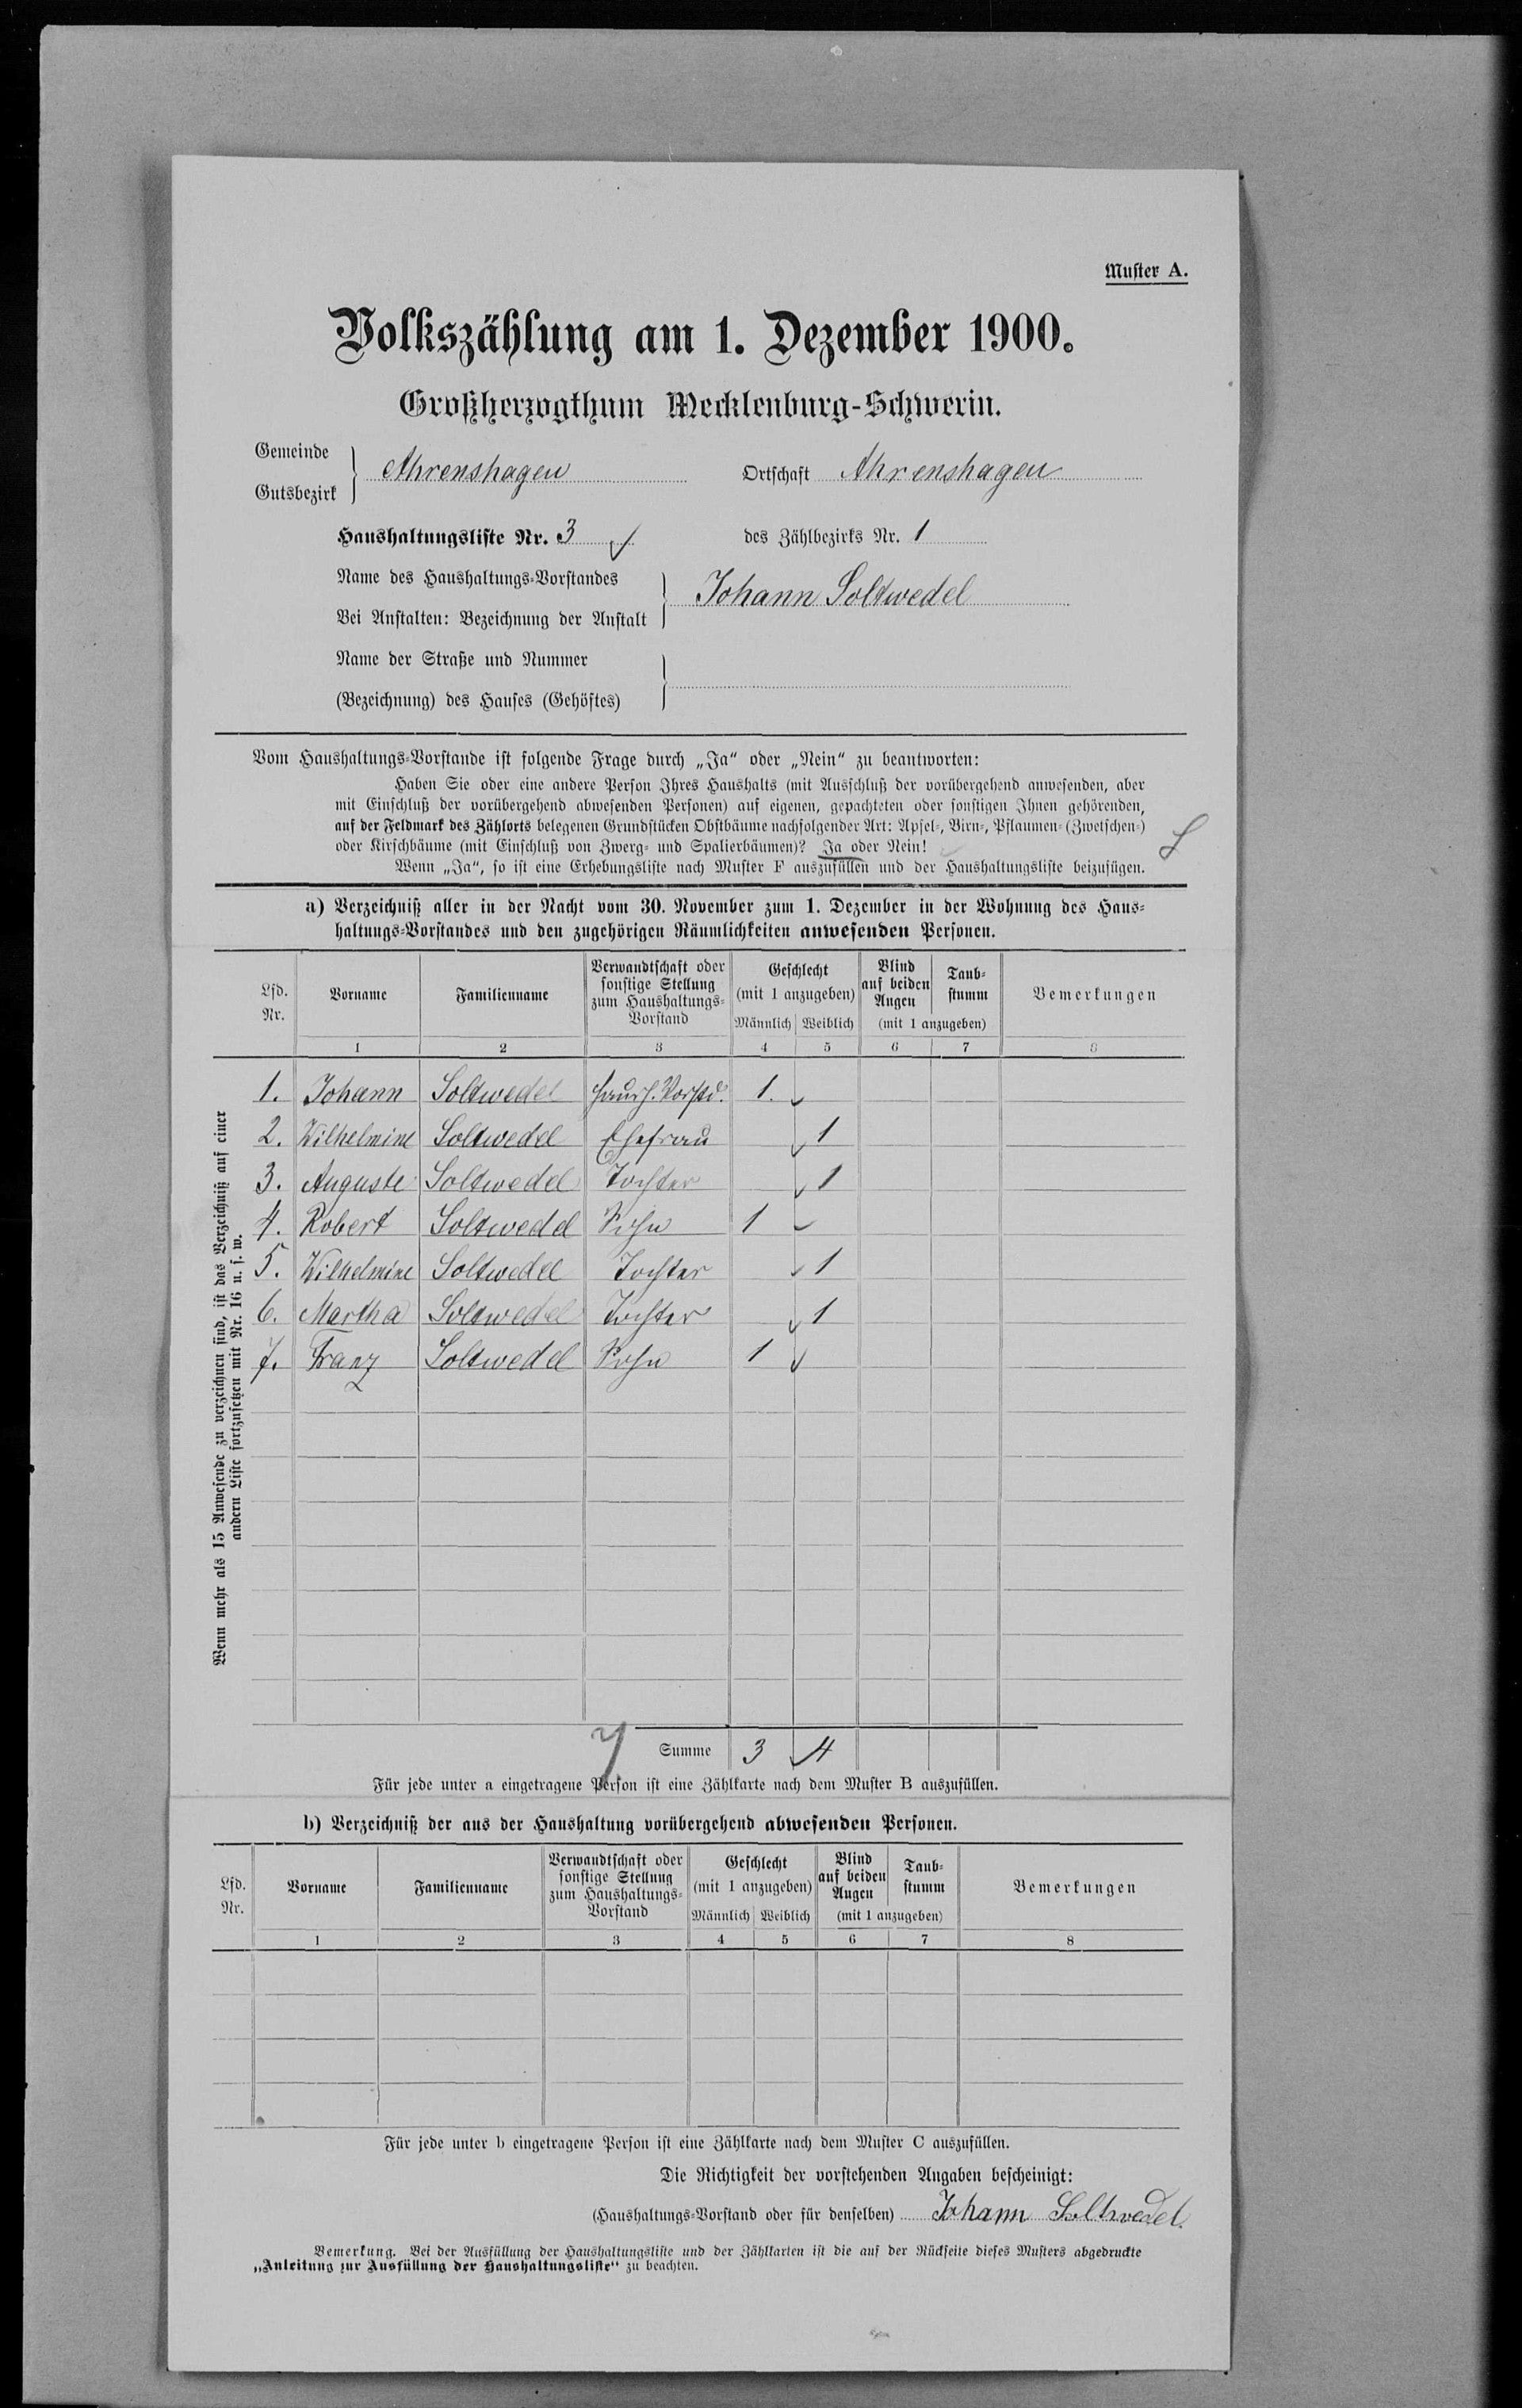 Muster A.
Volkszählung am 1. Dezember 1900.
Großherzogthum Mecklenburg-Schwerin.
Gemeinde
Gutsbezirk
Ahrenshagen
Ortschaft Ahrenshagen
Haushaltungsliste Nr. 3
des Zählbezirks Nr. 1
Name des Haushaltungs-Vorstandes
Bei Anstalten: Bezeichnung der Anstalt
Johann Soltwedel
Name der Straße und Nummer
(Bezeichnung) des Hauses (Gehöftes)
Vom Haushaltungs-Vorstande ist folgende Frage durch „Ja“ oder „Nein“ zu beantworten:
Haben Sie oder eine andere Person Ihres Haushalts (mit Ausschluß der vorübergehend anwesenden, aber
mit Einschluß der vorübergehend abwesenden Personen) auf eigenen, gepachteten oder sonstigen Ihnen gehörenden,
auf der Feldmark des Zählorts belegenen Grundstücken Obstbäume nachfolgender Art: Apfel-, Birn-, Pflaumen- (Zwetschen-)
oder Kirschbäume (mit Einschluß von Zwerg- und Spalierbäumen)? Ja oder Nein!
Wenn „Ja“, so ist eine Erhebungsliste nach Muster F auszufüllen und der Haushaltungsliste beizufügen.
a) Verzeichniß aller in der Nacht vom 30. November zum 1. Dezember in der Wohnung des Haus-
haltungs-Vorstandes und den zugehörigen Räumlichkeiten anwesenden Personen.
Lfd. Nr.
Vorname
Familienname
Verwandtschaft oder sonstige Stellung zum Haushaltungs-Vorstand
Geschlecht (mit 1 anzugeben)
Männlich Weiblich
Blind auf beiden Augen
Taub-stumm
(mit 1 anzugeben)
Bemerkungen
1 2 3 4 5 6 7 8
1. Johann Soltwedel Haush. Vorstd. 1.
2. Wilhelmine Soltwedel Ehefrau 1
3. Auguste Soltwedel Tochter 1
4. Robert Soltwedel Sohn 1
5. Wilhelmine Soltwedel Tochter 1
6. Martha Soltwedel Tochter 1
7. Franz Soltwedel Sohn 1
Wenn mehr als 15 Anwesende zu verzeichnen sind, ist das Verzeichniß auf einer
andern Liste fortzusetzen mit Nr. 16 u. s. w.
7 Summe 3 4
Für jede unter a eingetragene Person ist eine Zählkarte nach dem Muster B auszufüllen.
b) Verzeichniß der aus der Haushaltung vorübergehend abwesenden Personen.
Lfd. Nr.
Vorname
Familienname
Verwandtschaft oder sonstige Stellung zum Haushaltungs-Vorstand
Geschlecht (mit 1 anzugeben)
Männlich Weiblich
Blind auf beiden Augen
Taub-stumm
(mit 1 anzugeben)
Bemerkungen
1 2 3 4 5 6 7 8
Für jede unter b eingetragene Person ist eine Zählkarte nach dem Muster C auszufüllen.
Die Richtigkeit der vorstehenden Angaben bescheinigt:
(Haushaltungs-Vorstand oder für denselben) Johann Soltwedel.
Bemerkung. Bei der Ausfüllung der Haushaltungsliste und der Zählkarten ist die auf der Rückseite dieses Musters abgedruckte
„Anleitung zur Ausfüllung der Haushaltungsliste“ zu beachten.